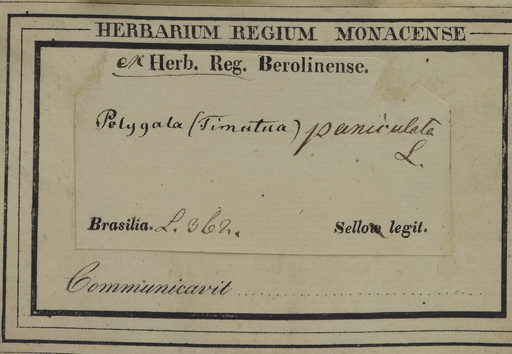 HERBARIUM REGIUM MONACENSE
ex Herb. Reg. Berolinense.
Polygala (Timutua) paniculata
L.
Brasilia. L. 362. Sellow legit.
Communicavit